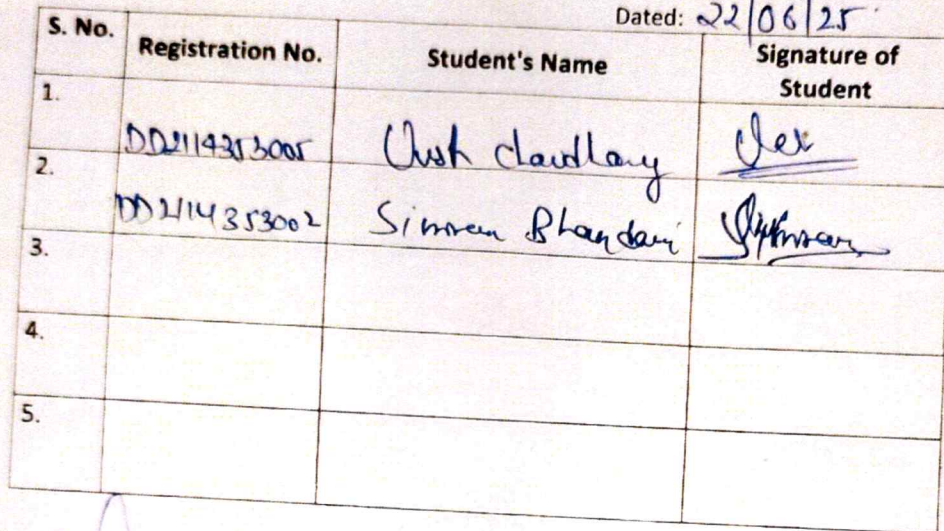 Dated: 22/06/25
S. No. Registration No. Student's Name Signature of Student
1. DD2114353005
2. DD2114353002 Simran Bhandari
3.
4.
5.